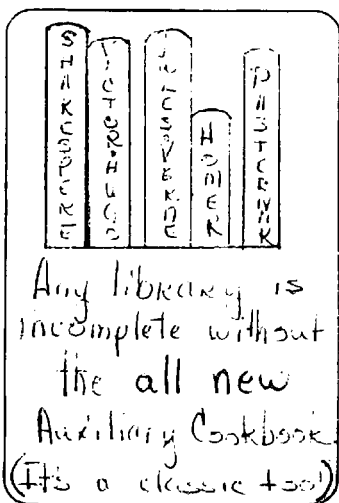 SHAKESPERE
VICTOR HUGO
JULES VERNE
HOMER
PASTERNAK
Any library is
incomplete without
the all new
Auxiliary Cookbook
(It's a classic too!)